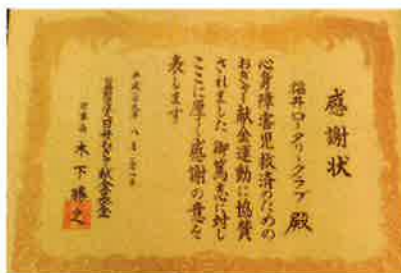 感謝状
福井ロータリークラブ 殿
心身障害児救済のための
おぎゃー献金運動に協賛
されました御篤志に対し
ここに厚く感謝の意を
表します
平成二十九年 八月
公益財団法人日母おぎゃー献金基金
理事長 木下勝之